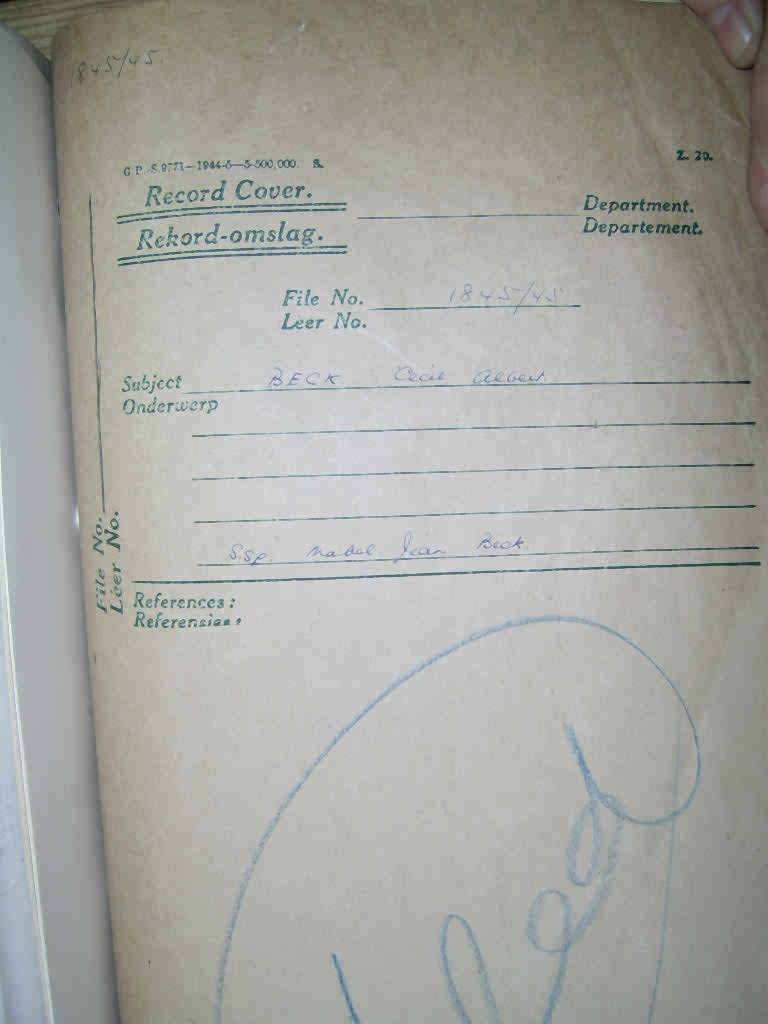 1845/45
G.P.-S.9771—1944-5—5-500,000. S.
Z. 20.
Record Cover.
Rekord-omslag.
Department.
Departement.
File No. 1845/45
Leer No.
Subject BECK Cecil Albert
Onderwerp
S.Sp. Mabel Jean Beck
File No.
Leer No.
References:
Referensies: